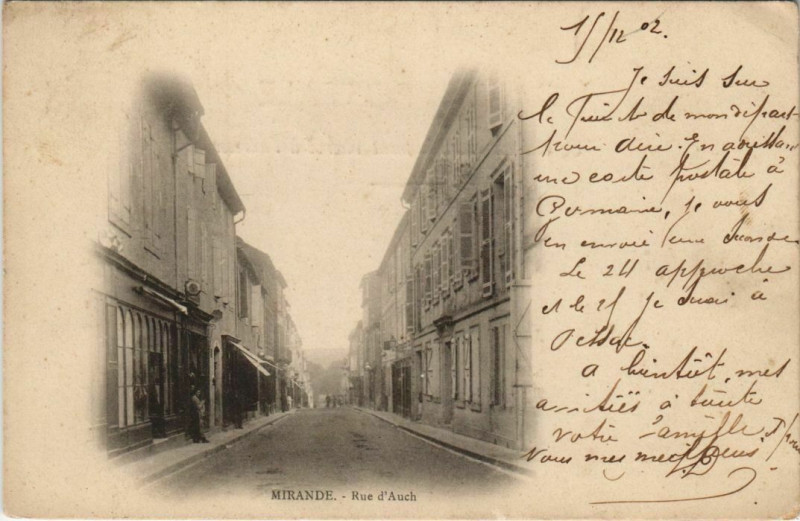 15/12 02.
Je suis sur
le point de mon départ
pour dire. En
une carte postale à
Germaine, je vous
en envoie une
Le 24 approche
et le 25 je serai à
A bientôt, mes
amitiés à toute
votre famille &
vous mes meilleurs
MIRANDE. - Rue d'Auch